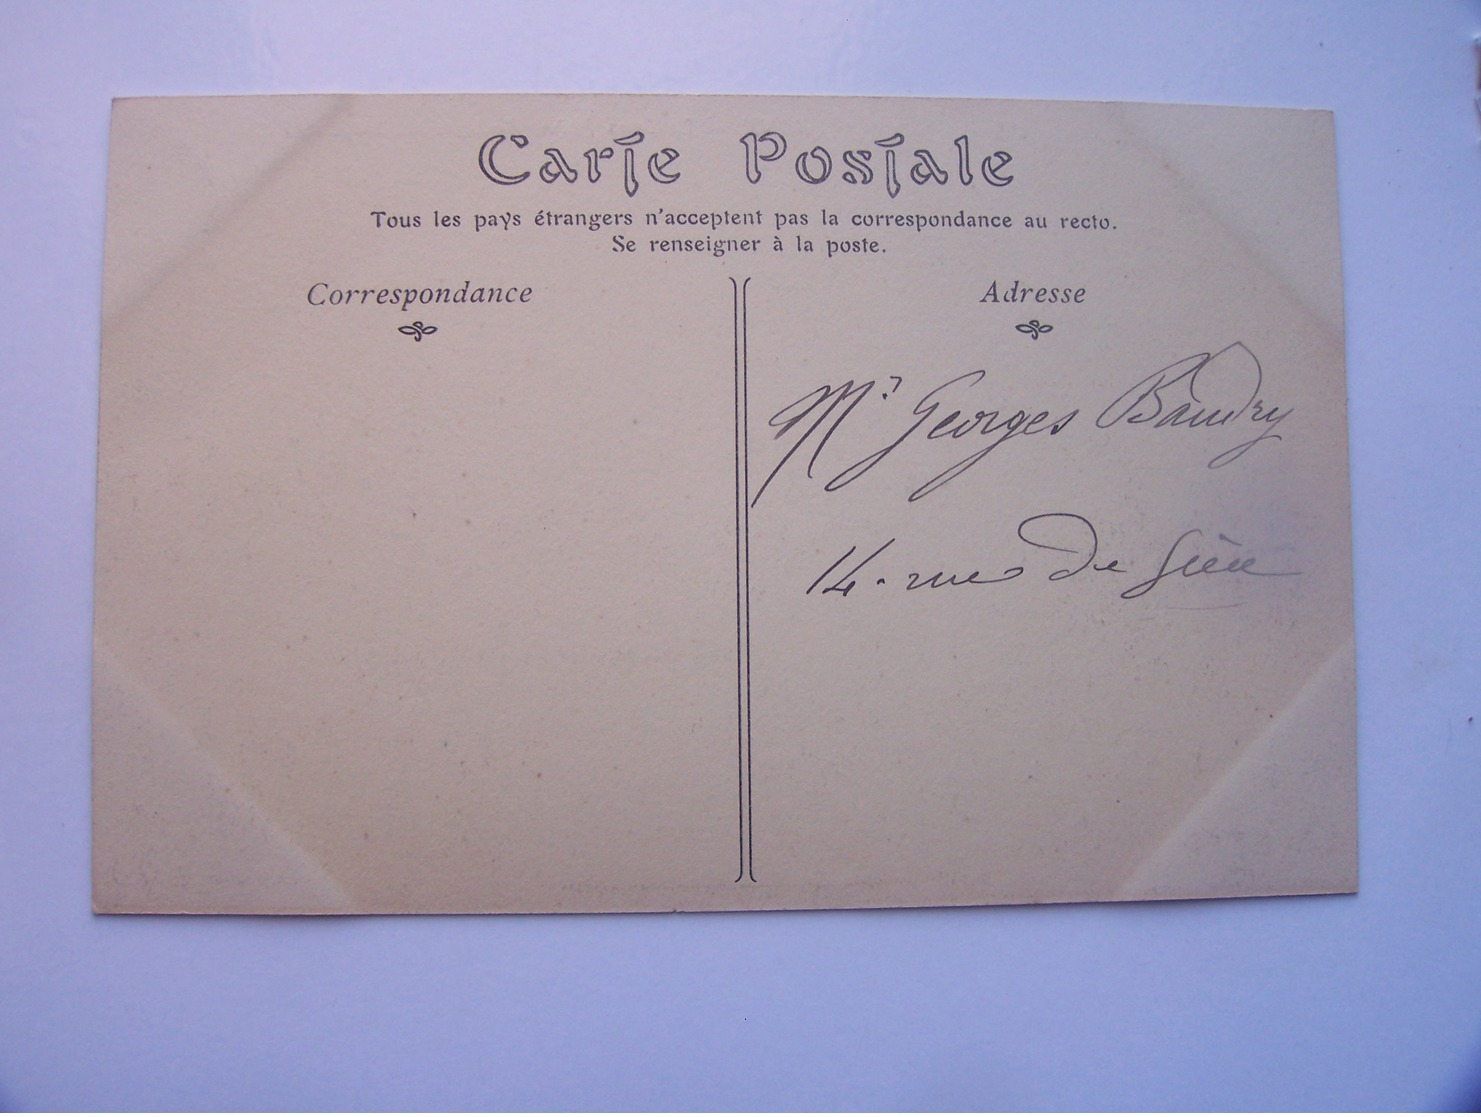 Carte Postale
Tous les pays étrangers n'acceptent pas la correspondance au recto.
Se renseigner à la poste.
Correspondance
Adresse
Mr Georges Baudry
14. rue de